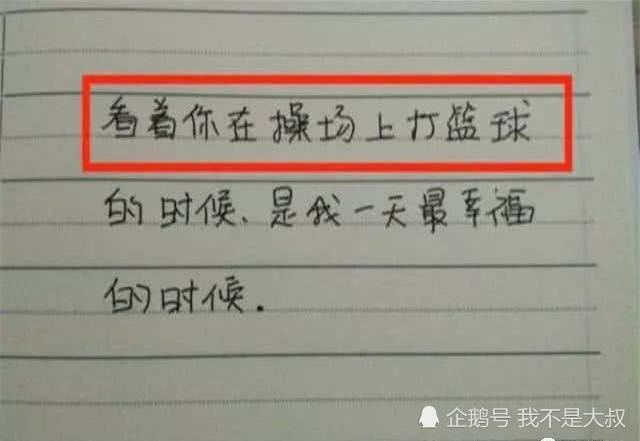 看着你在操场上打篮球
的时候、是我一天最幸福
的时候.
企鹅号 我不是大叔